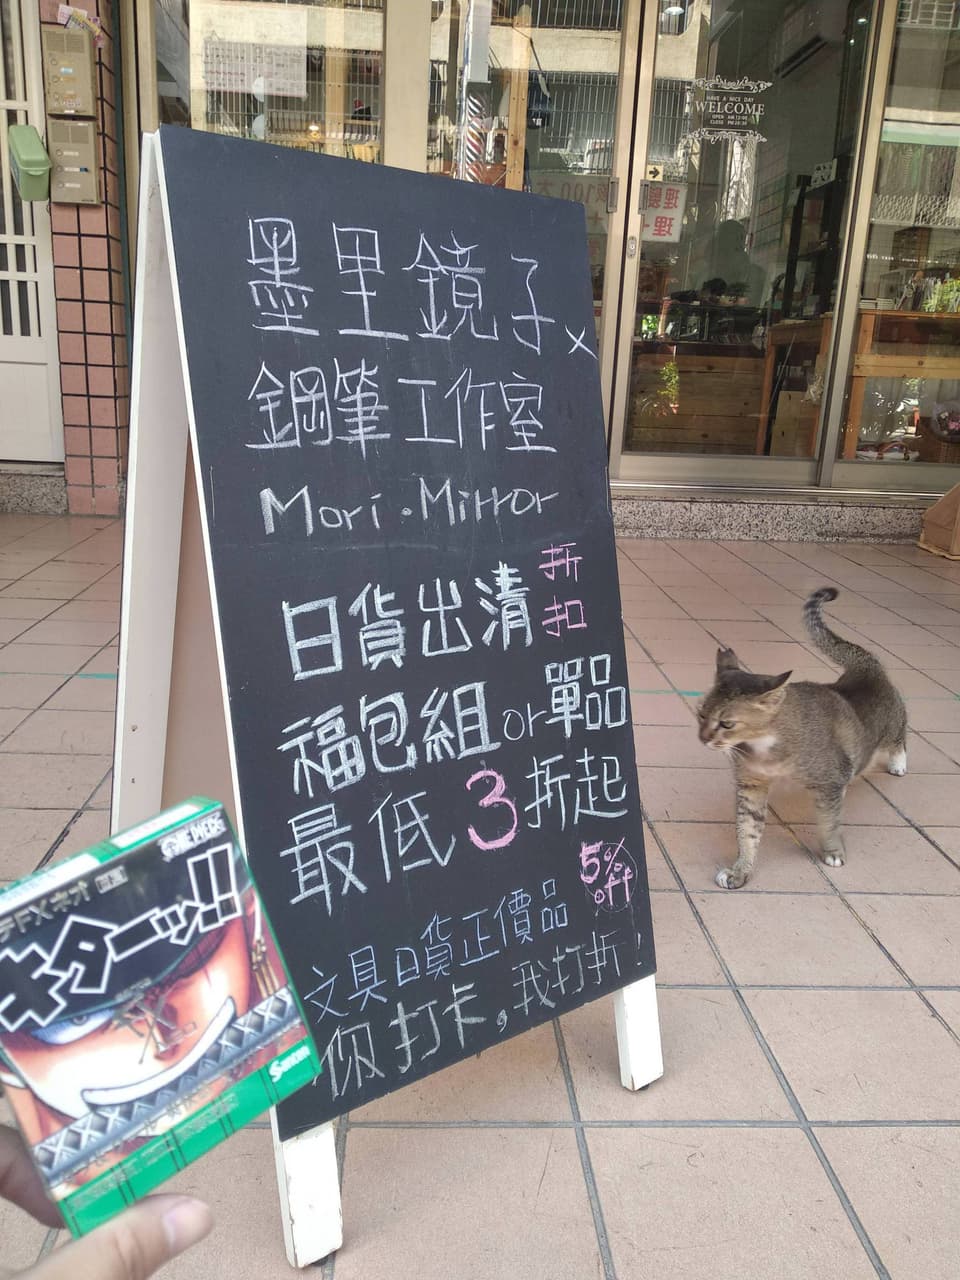 墨里鏡子x
鋼筆工作室
Mori・Mirror
日貨出清折扣
福包組or單品
最低3折起
5%off
文具日貨正價品
你打卡，我打折！
HAVE A NICE DAY
WELCOME
OPEN AM 12:00
CLOSE PM 20:30
キターッ!!
Santen